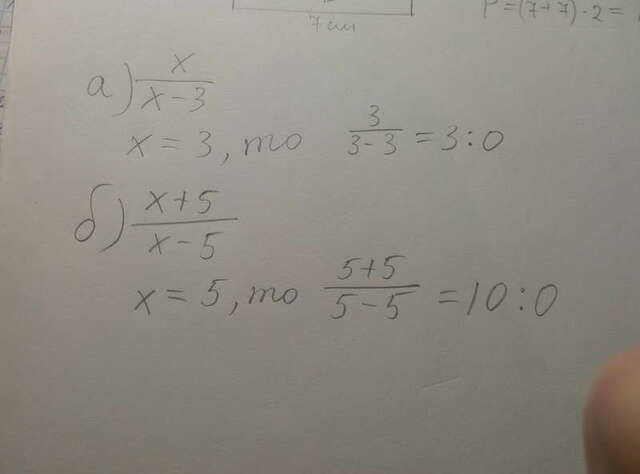 7 см
P=(7+7)·2=
а) x/(x-3)
x=3, то 3/(3-3)=3:0
б) (x+5)/(x-5)
x=5, то (5+5)/(5-5)=10:0